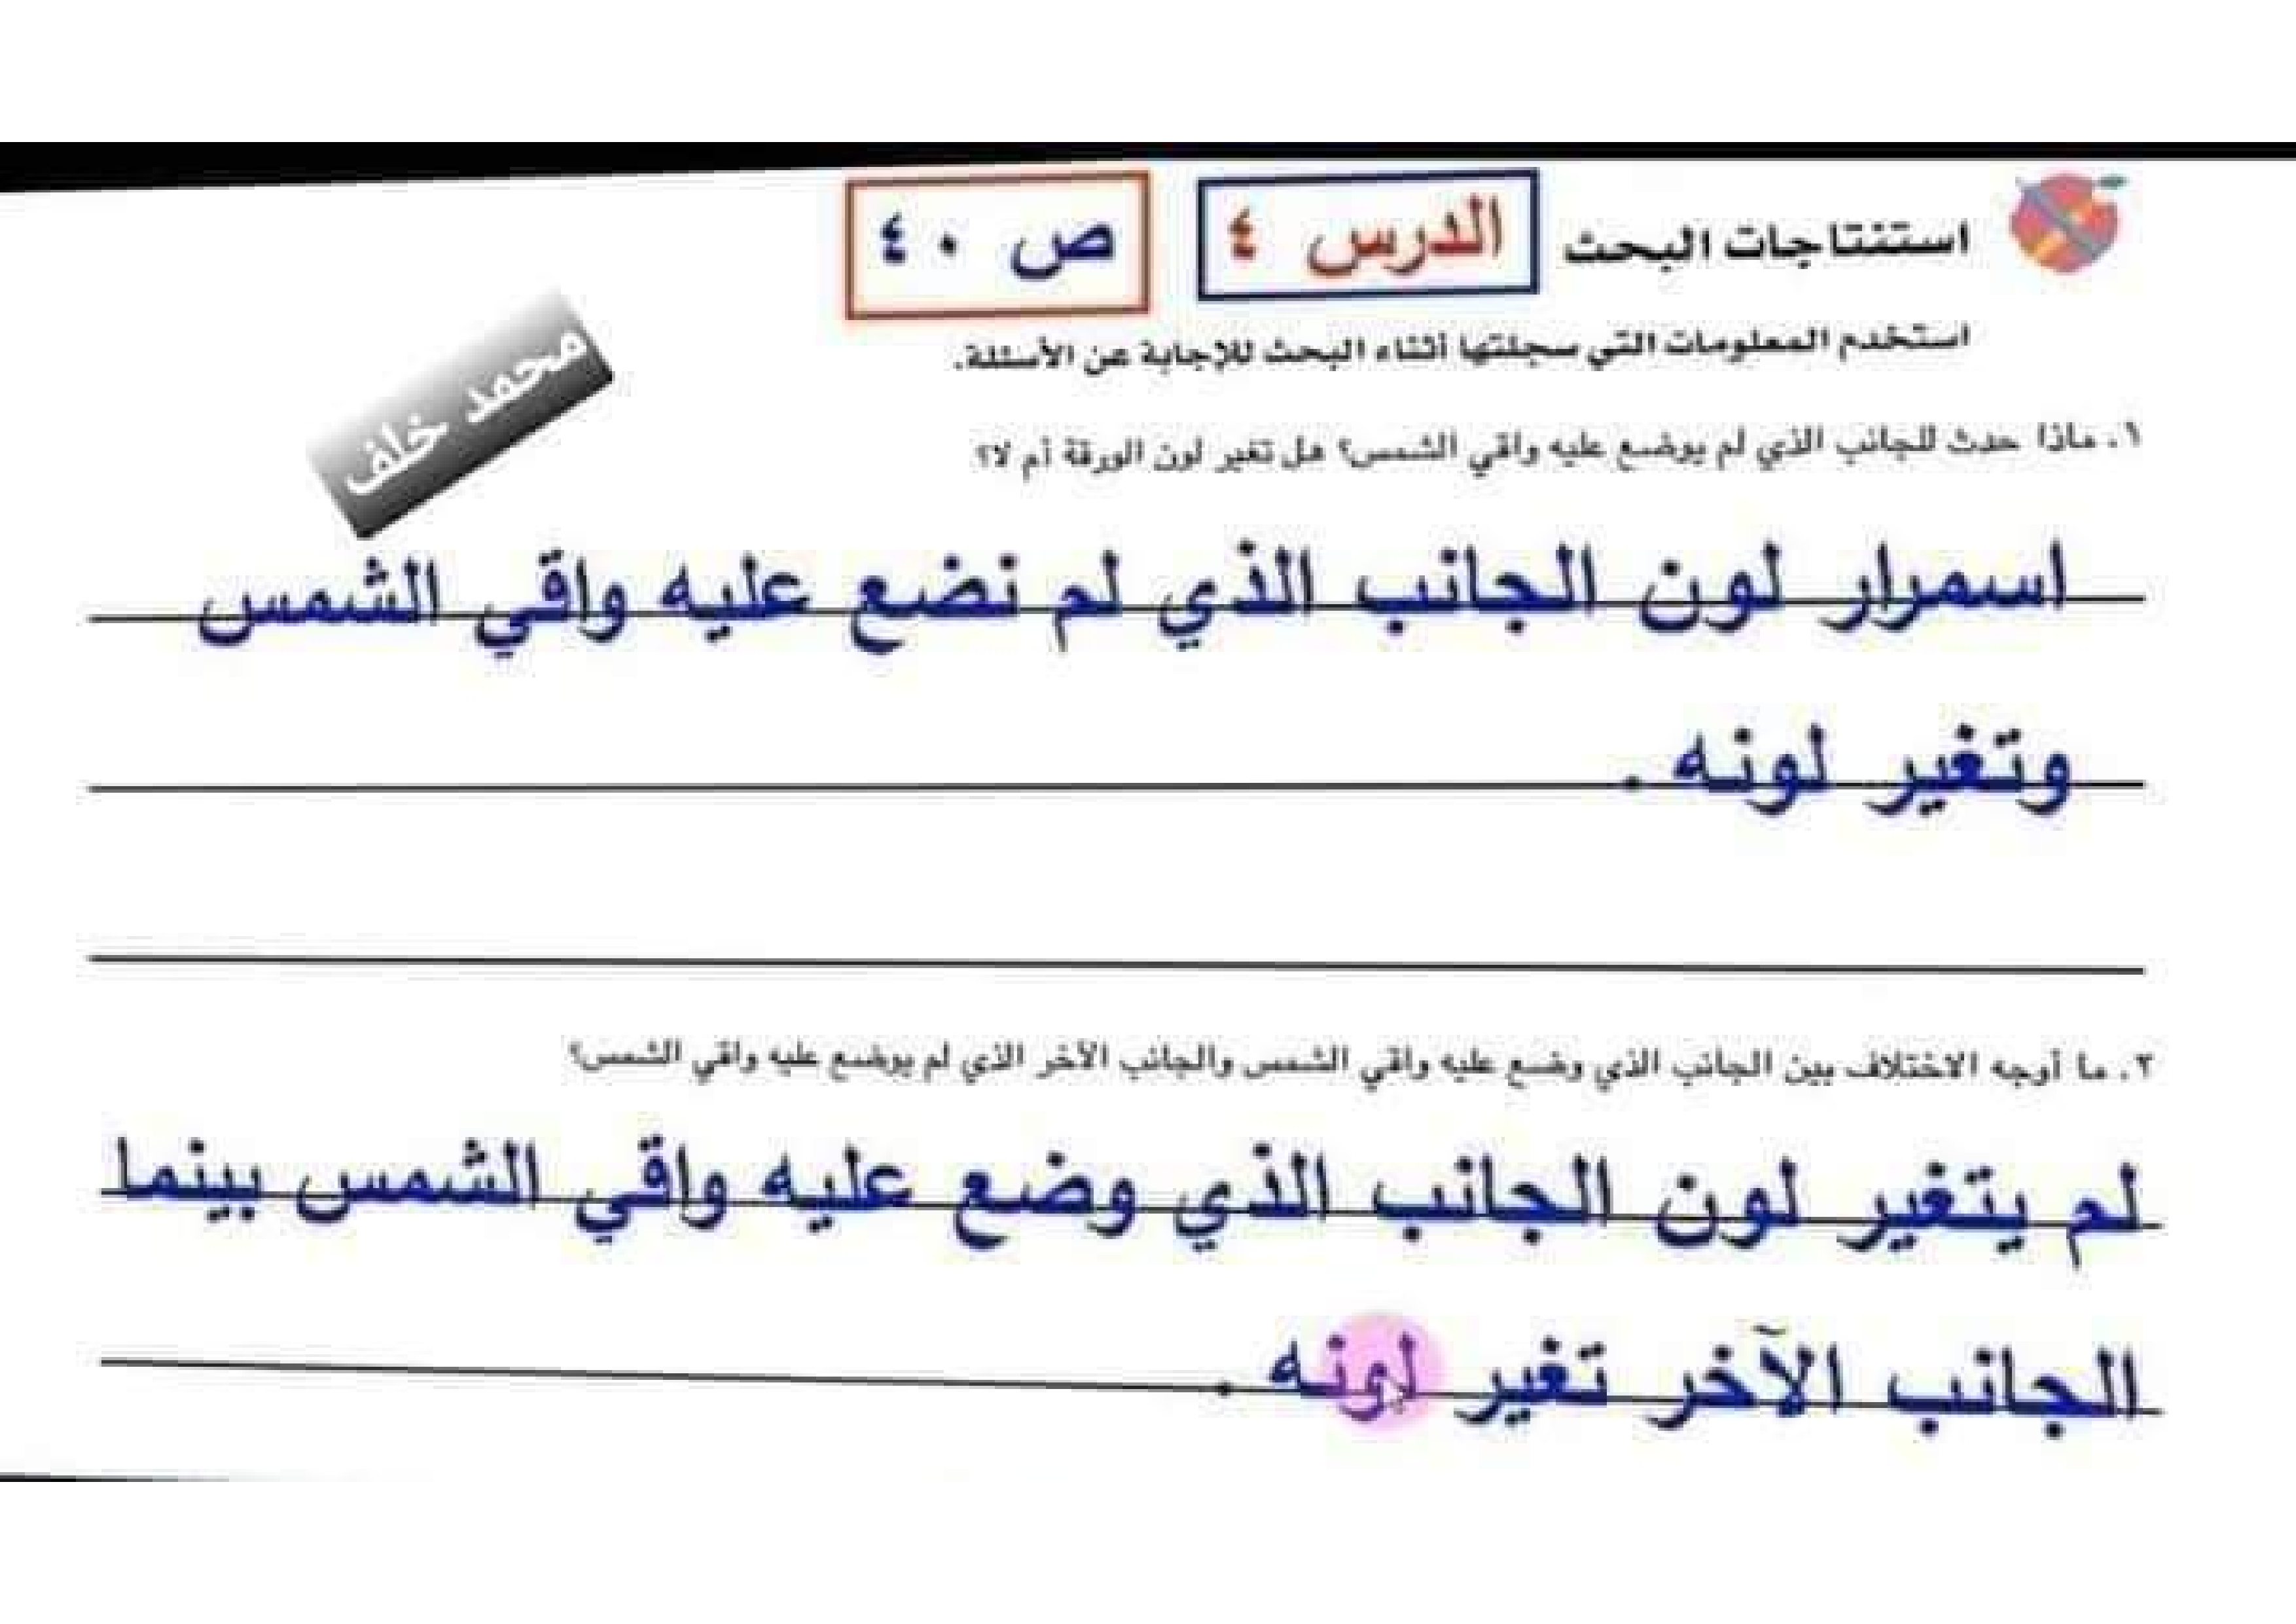 استنتاجات البحث
الدرس ٤
ص ٤٠
استخدم المعلومات التي سجلتها أثناء البحث للإجابة عن الأسئلة.
محمد خلف
١. ماذا حدث للجانب الذي لم يوضع عليه واقي الشمس؟ هل تغير لون الورقة أم لا؟
اسمرار لون الجانب الذي لم نضع عليه واقي الشمس
وتغير لونه .
٢. ما أوجه الاختلاف بين الجانب الذي وضع عليه واقي الشمس والجانب الآخر الذي لم يوضع عليه واقي الشمس؟
لم يتغير لون الجانب الذي وضع عليه واقي الشمس بينما
الجانب الآخر تغير لونه .